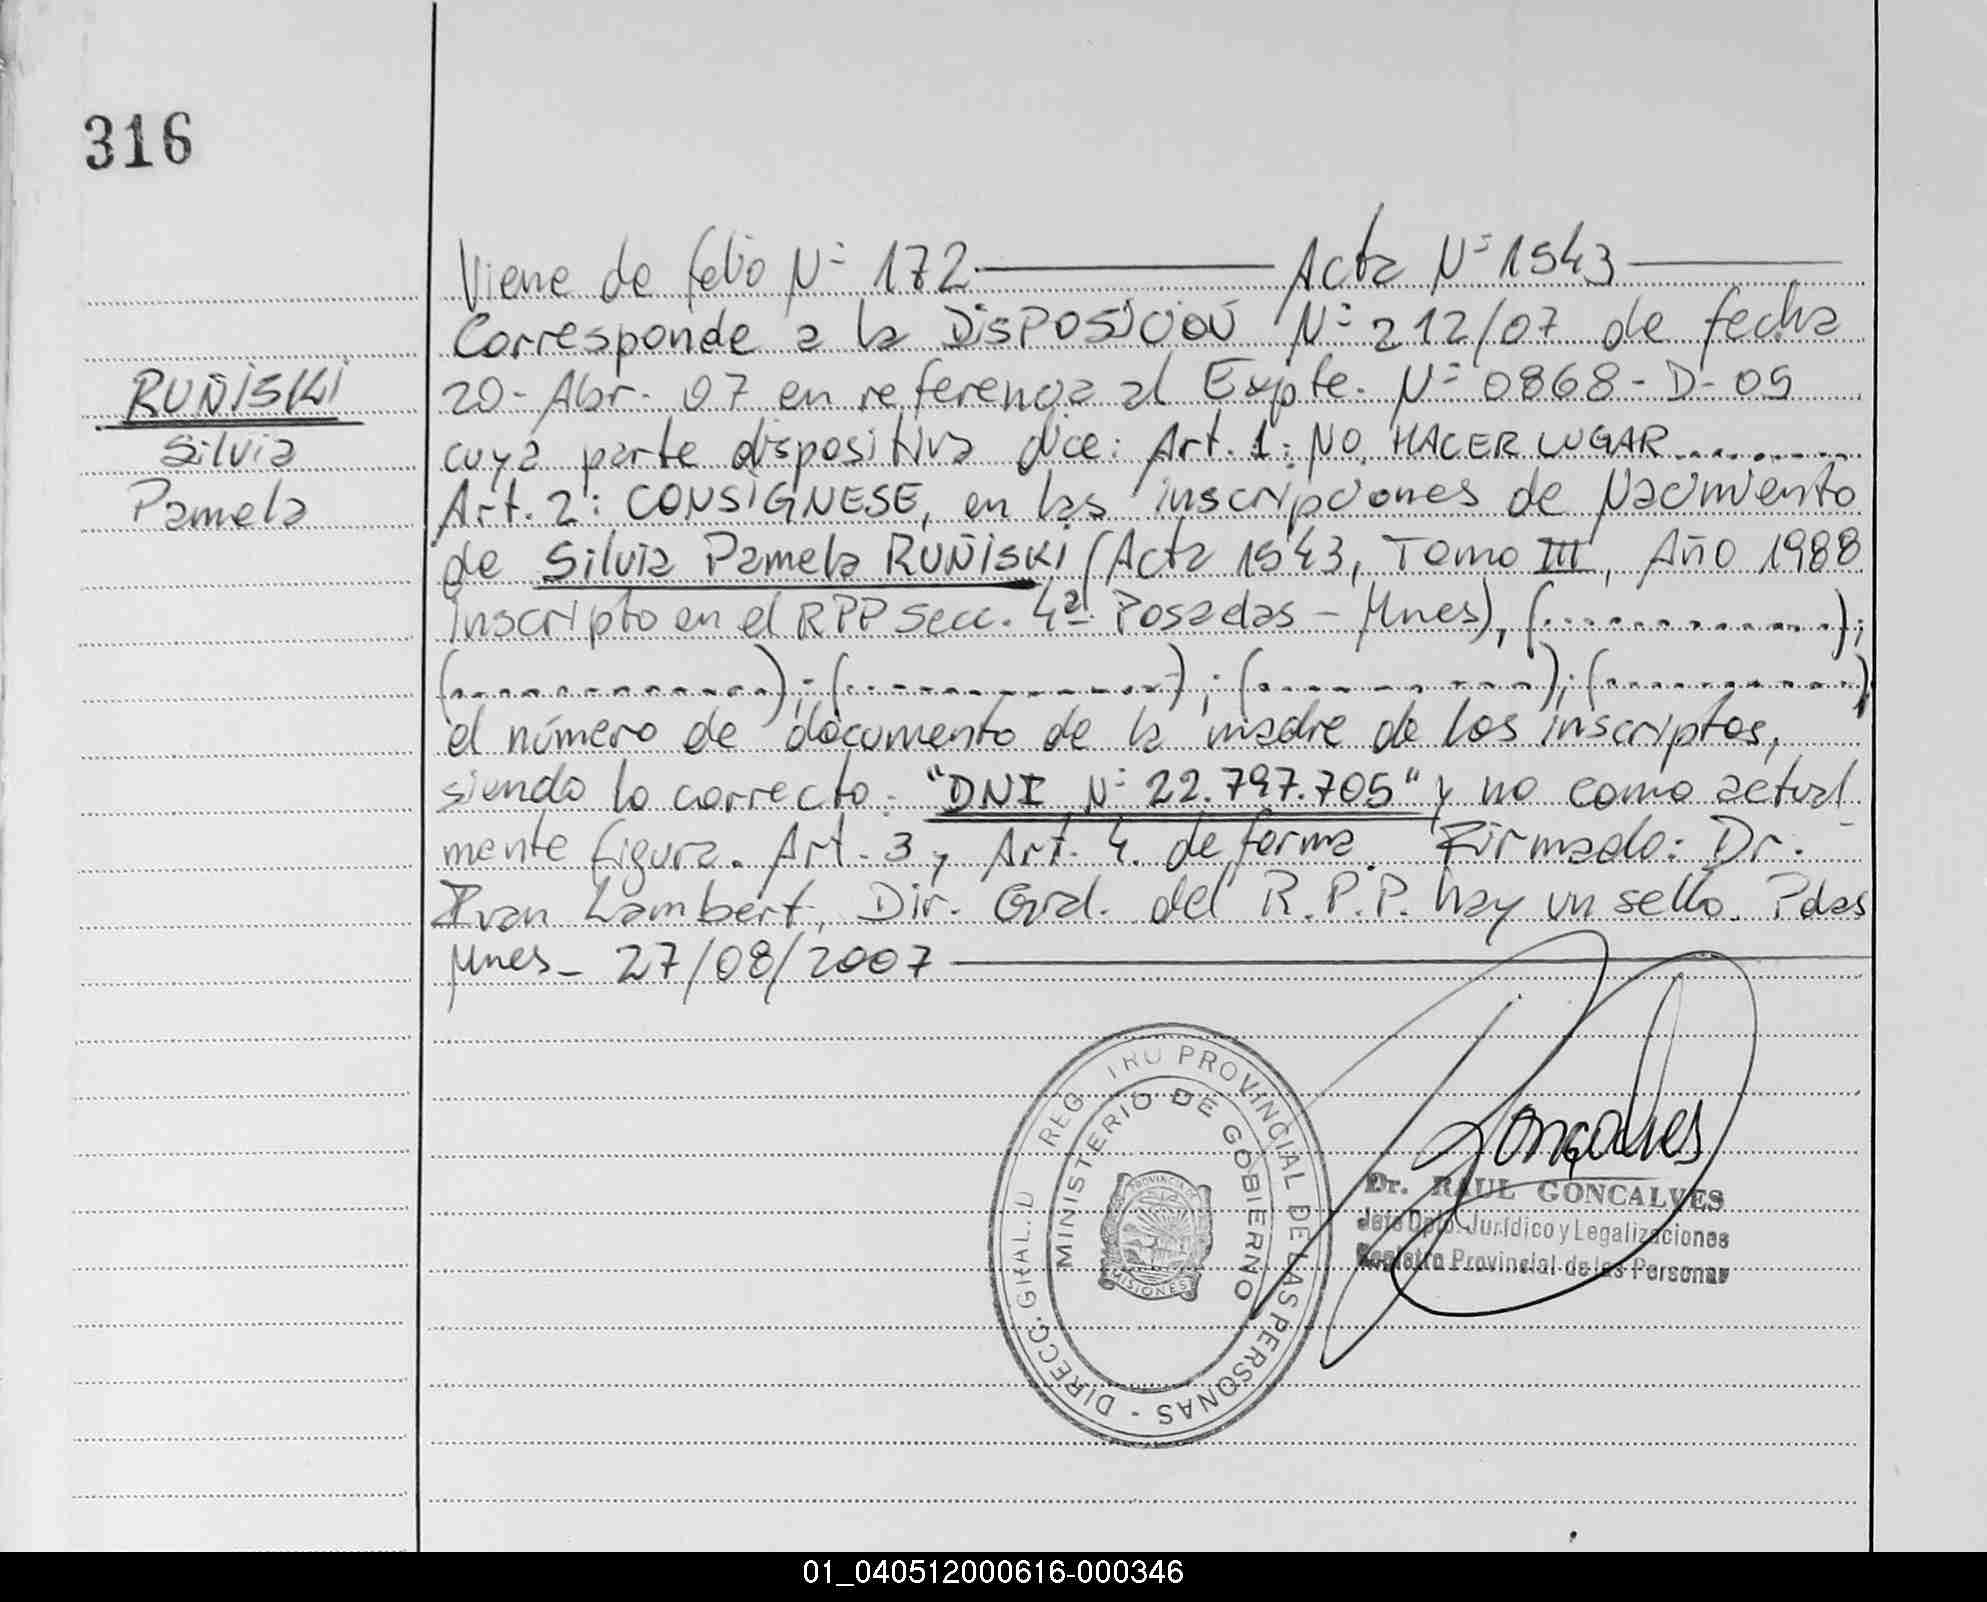 316
Viene de folio Nº 172 ———— Acta Nº 1543 ————
Corresponde a la DISPOSICIÓN Nº 212/07 de fecha
20-Abr.-07 en referencia al Expte. Nº 0868-D-05
cuya parte dispositiva dice: Art. 1: NO HACER LUGAR..........
Art. 2: CONSIGNESE, en las inscripciones de Nacimiento
de Silvia Pamela RUÑISKI (Acta 1543, Tomo III, Año 1988
inscripto en el RPP Secc. 4ª Posadas - Mnes), (..............);
(..............); (..............); (..............); (..............)
el número de documento de la madre de los inscriptos,
siendo lo correcto: "DNI Nº 22.797.705" y no como actual-
mente figura. Art. 3 y Art. 4. de forma. Firmado: Dr.
Ivan Lambert, Dir. Gral. del R.P.P. hay un sello. Pdas
Mnes- 27/08/2007 ————
RUÑISKI
Silvia
Pamela
REG TRO PROVINCIAL DE LAS PERSONAS - DIRECC. GRAL. D
MINISTERIO DE GOBIERNO
PROVINCIA DE
MISIONES
Gonçalves
Dr. RAUL GONCALVES
Jefe Dpto. Jurídico y Legalizaciones
Registro Provincial de las Personas
01_040512000616-000346